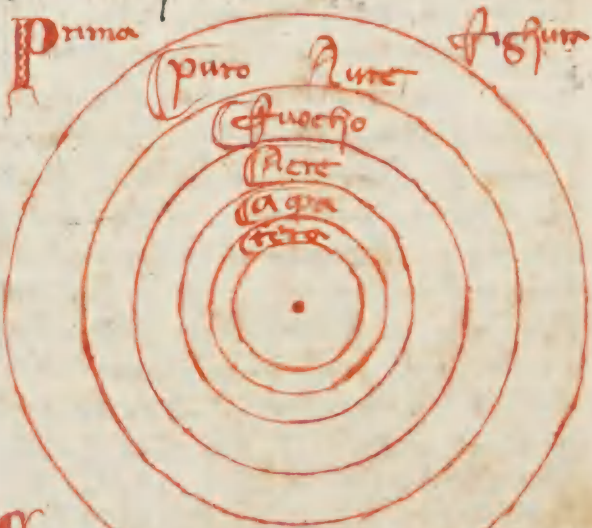 Prima fighura
puro Aure
fuocho
Aere
aqa
tera